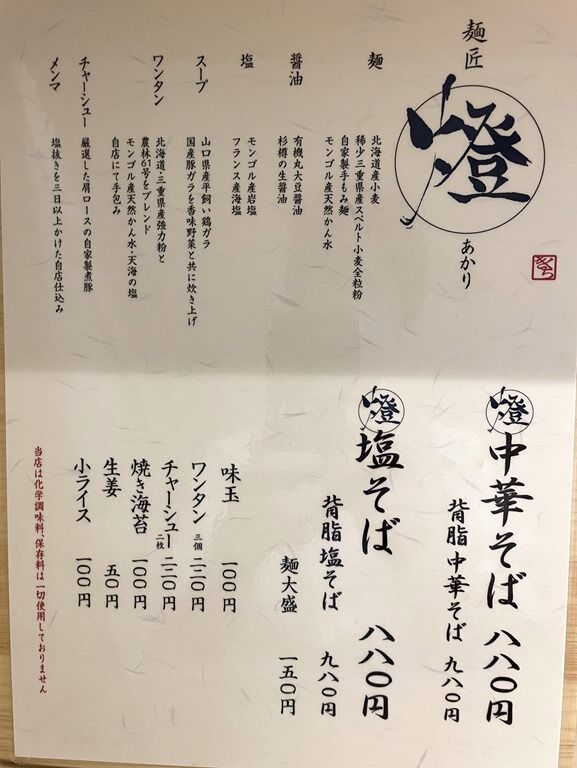 麺匠
燈
あかり
麺
北海道産小麦
稀少三重県産スペルト小麦全粒粉
自家製手もみ麺
モンゴル産天然かん水
醤油
有機丸大豆醤油
杉樽の生醤油
塩
モンゴル産岩塩
フランス産海塩
スープ
山口県産平飼い鶏ガラ
国産豚ガラを香味野菜と共に炊き上げ
ワンタン
北海道・三重県産強力粉と
農林61号をブレンド
モンゴル産天然かん水・天海の塩
自店にて手包み
チャーシュー
厳選した肩ロースの自家製煮豚
メンマ
塩抜きを三日以上かけた自店仕込み
燈
中華そば 八八〇円
背脂中華そば 九八〇円
燈
塩そば 八八〇円
背脂塩そば 九八〇円
麺大盛 一五〇円
味玉 一〇〇円
ワンタン 三個 二二〇円
チャーシュー 二枚 二二〇円
焼き海苔 一〇〇円
生姜 五〇円
小ライス 一〇〇円
当店は化学調味料、保存料は一切使用しておりません